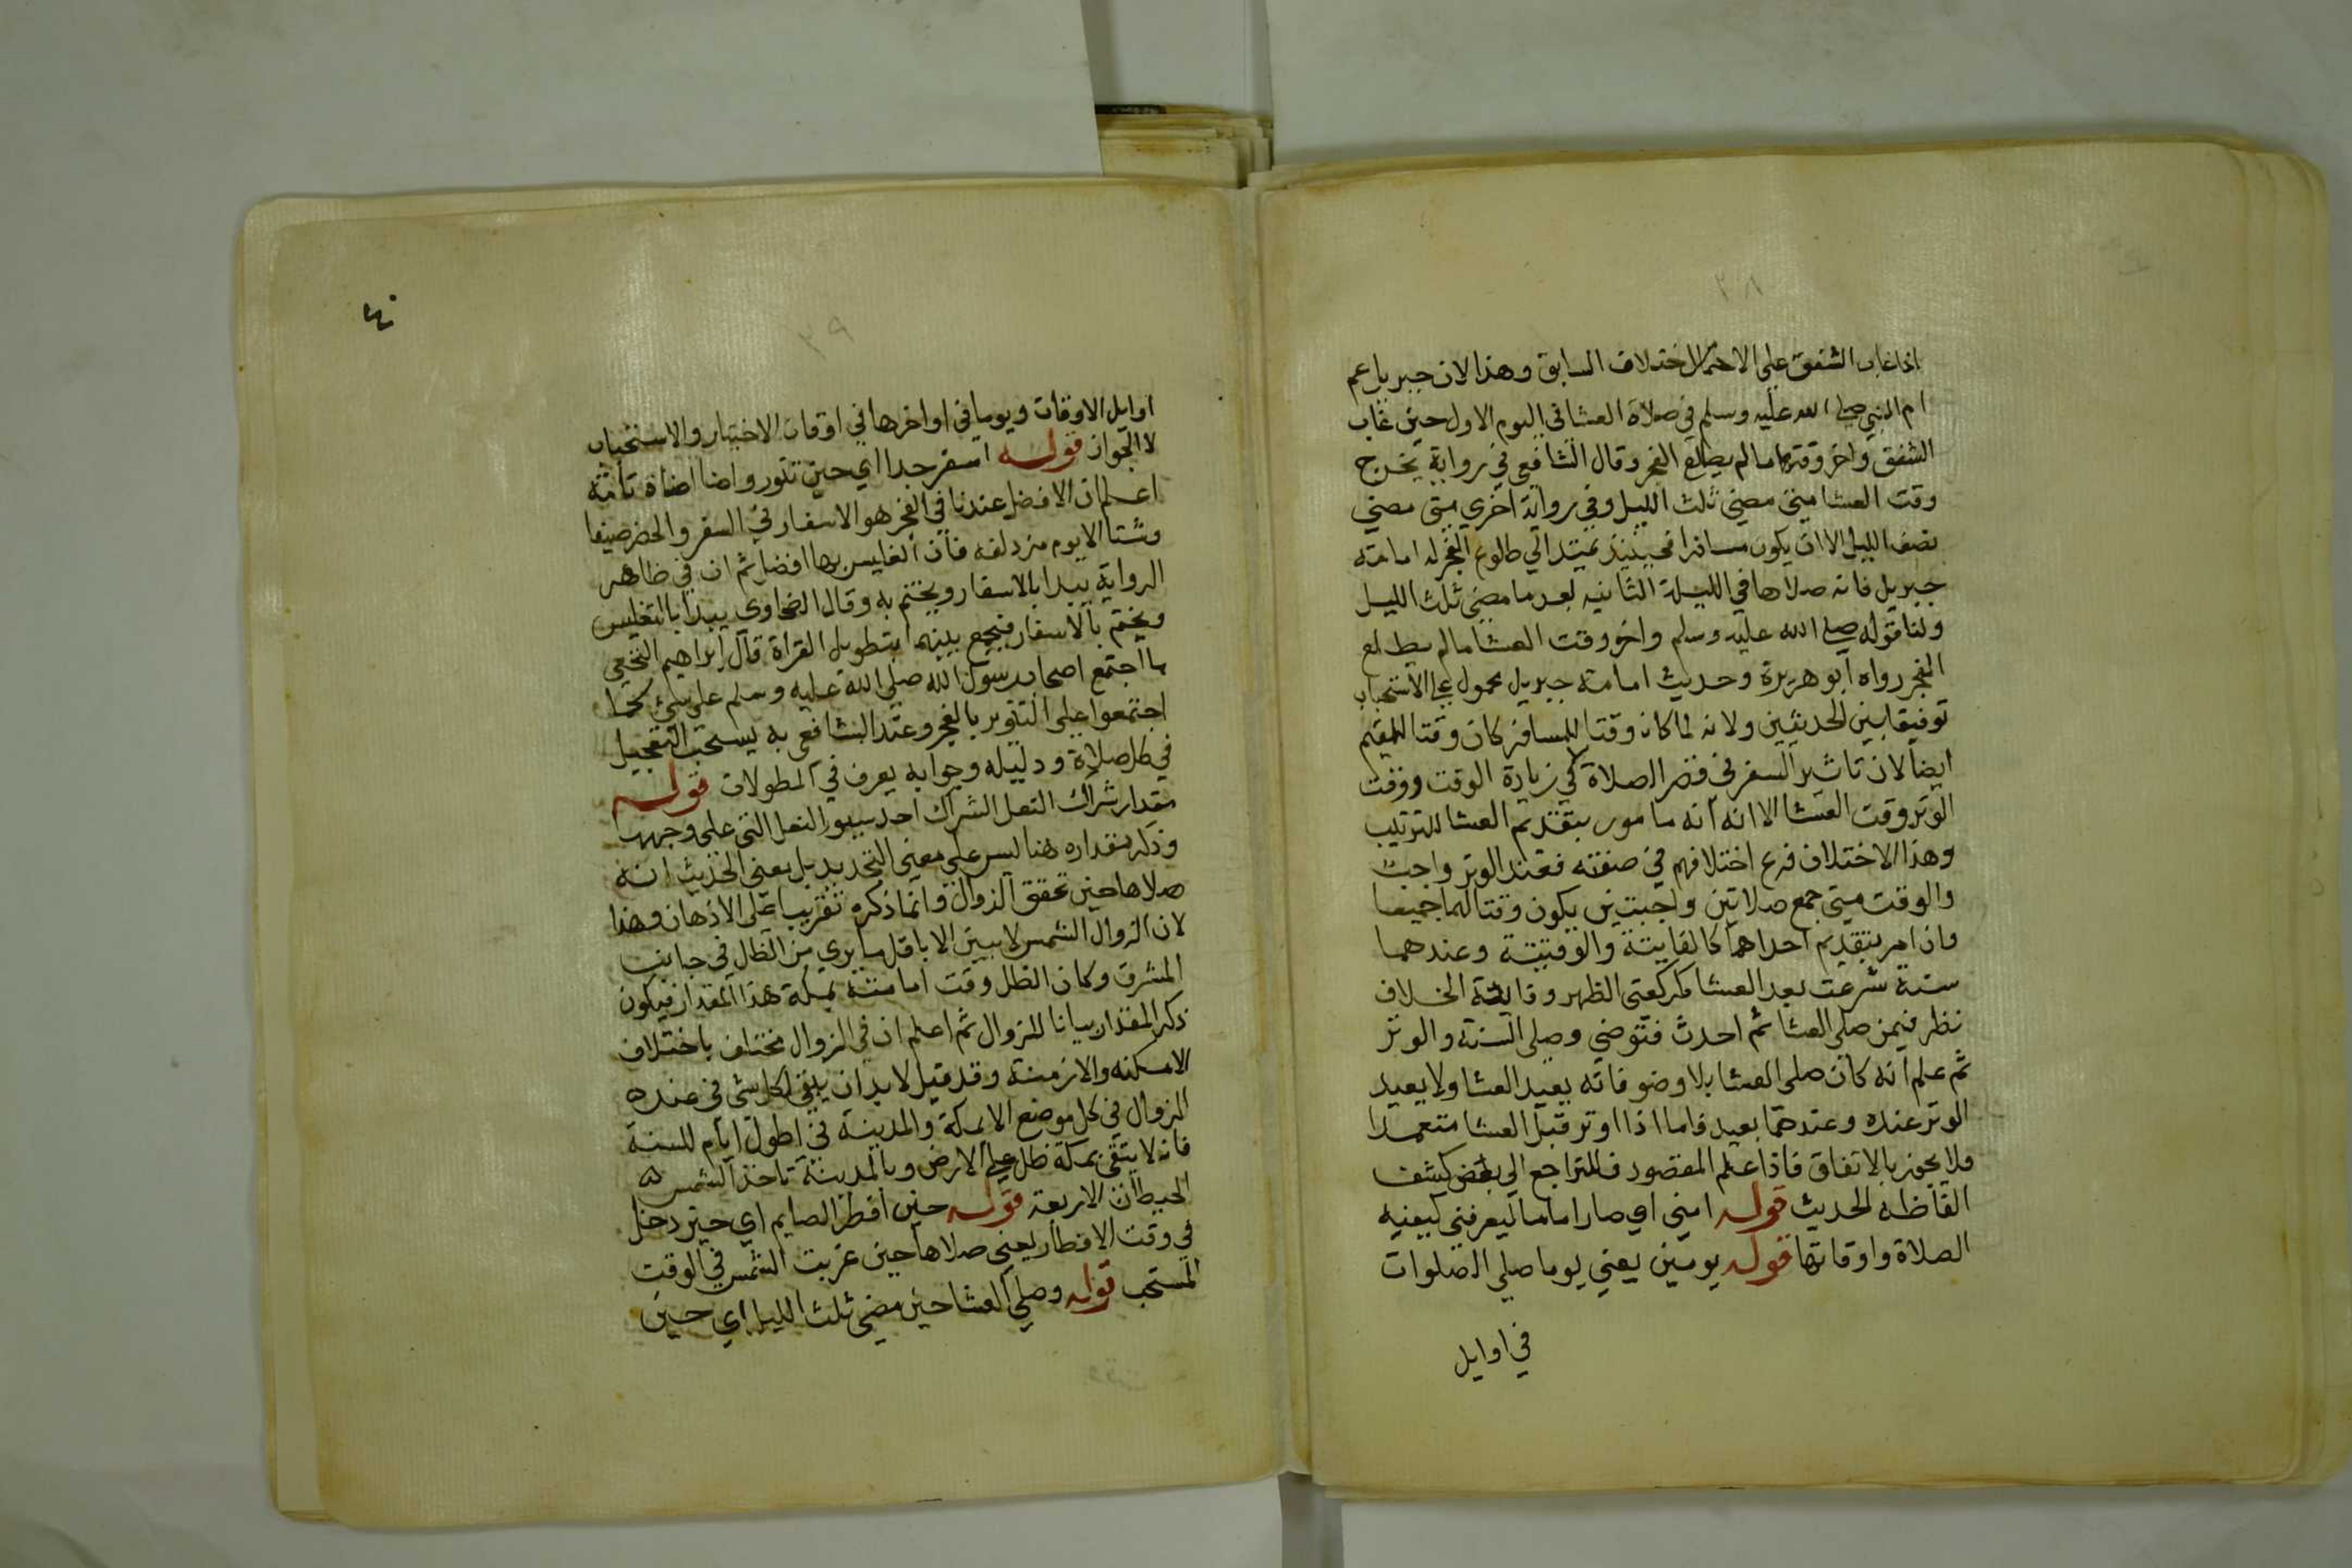 اذا غاب الشفق على الاختلاف السابق وهذا لان جبريل عم
ام النبي صلى الله عليه وسلم في صلاة العشا في اليوم الاول حين غاب
الشفق واخر وقتها ما لم يطلع الفجر وقال الشافعي في رواية يخرج
وقت العشا متى مضى ثلث الليل وفي رواية اخري متى مضي
نصف الليل الا ان يكون مسافرا فحينيذ يمتد الي طلوع الفجر له امامته
جبريل فانه صلاها في الليلة الثانيه بعد ما مضى ثلث الليل
ولنا قوله صلى الله عليه وسلم واخر وقت العشا ما لم يطلع
الفجر رواه ابو هريرة وحديث امامته جبريل محمول على الاستحباب
توفيقا بين الحديثين ولانه لما كان وقتا للمسافر كان وقتا للمقيم
ايضا لان تاثير السفر في قصر الصلاة لا في زيادة الوقت ووقت
الوتر وقت العشا الا انه انه مامور بتقديم العشا للترتيب
وهذا الاختلاف فرع اختلافهم في صفته فعند الوتر واجب
والوقت متى جمع صلاتين واجبتين يكون وقتا لهما جميعا
وان امر بتقديم احداهما كالفايتة والوقتية وعندهما
سنة شرعت بعد العشا كركعتي الظهر وفايدة الخلاف
نظر فيمن صلى العشا ثم احدث فتوضي وصلى السنة والوتر
ثم علم انه كان صلى العشا بلا وضو فانه يعيد العشا ولا يعيد
الوتر عنده وعندهما يعيد فاما اذا اوتر قبل العشا متعمدا
فلا يجوز بالاتفاق فاذا علم المقصود فلنتراجع الي بعض كشف
الفاظه الحديث قوله امني اي صار اماما ليعرفني كيفيه
الصلاة واوقاتها قوله يومين يعني يوما صلى الصلوات
في اوايل
٤٠
اوايل الاوقات ويوما في اواخرها في اوقات الاختيار والاستحباب
لا الجواز قوله اسفر جدا اي حين تنور واضا اضاة تامة
اعلم ان الافضل عندنا في الفجر هو الاسفار في السفر والحضر صيفا
وشتا الا يوم مزدلفه فان الغليس بها افضل ثم ان في ظاهر
الرواية يبدا بالاسفار ويختم به وقال الضحاوي يبدا بالتغليس
ويختم بالاسفار فيجمع بينهما بتطويل القراة قال ابراهيم النخعي
ما اجتمع اصحاب رسول الله صلى الله عليه وسلم على شئ كما
اجتمعوا على التنوير بالفجر وعند الشافعي به يستحب التعجيل
في كل صلاة ودليله وجوابه يعرف في المطولات قوله
مقدار شراك النعل الشراك احد سيور النعل التي على وجهها
وذكر مقداره هنا ليس على معنى التحديد بل يعني الحديث انه
صلاها حين تحقق الزوال وانما ذكره تقريبا على الاذهان وهذا
لان الزوال الشمس لا يبين الا باقل ما يري من الظل في جانب
المشرق وكان الظل وقت امامته بمكة هذا المقدار فيكون
ذكر المقدار بيانا للزوال ثم اعلم ان في الزوال مختلف باختلاف
الامكنه والازمنة وقد قيل لا بد ان يبقى لكل شى فى عنده
الزوال في كل موضع الا بمكة والمدينة في اطول ايام للسنة
فانه لا يبقى بمكة ظل على الارض وبالمدينة تاخذ الشمس
الحيطان الاربعة قوله حين افطر الصايم اي حين دخل
في وقت الافطار يعني صلاها حين غربت الشمس في الوقت
المستحب قوله وصلي العشا حين مضي ثلث الليل اي حين